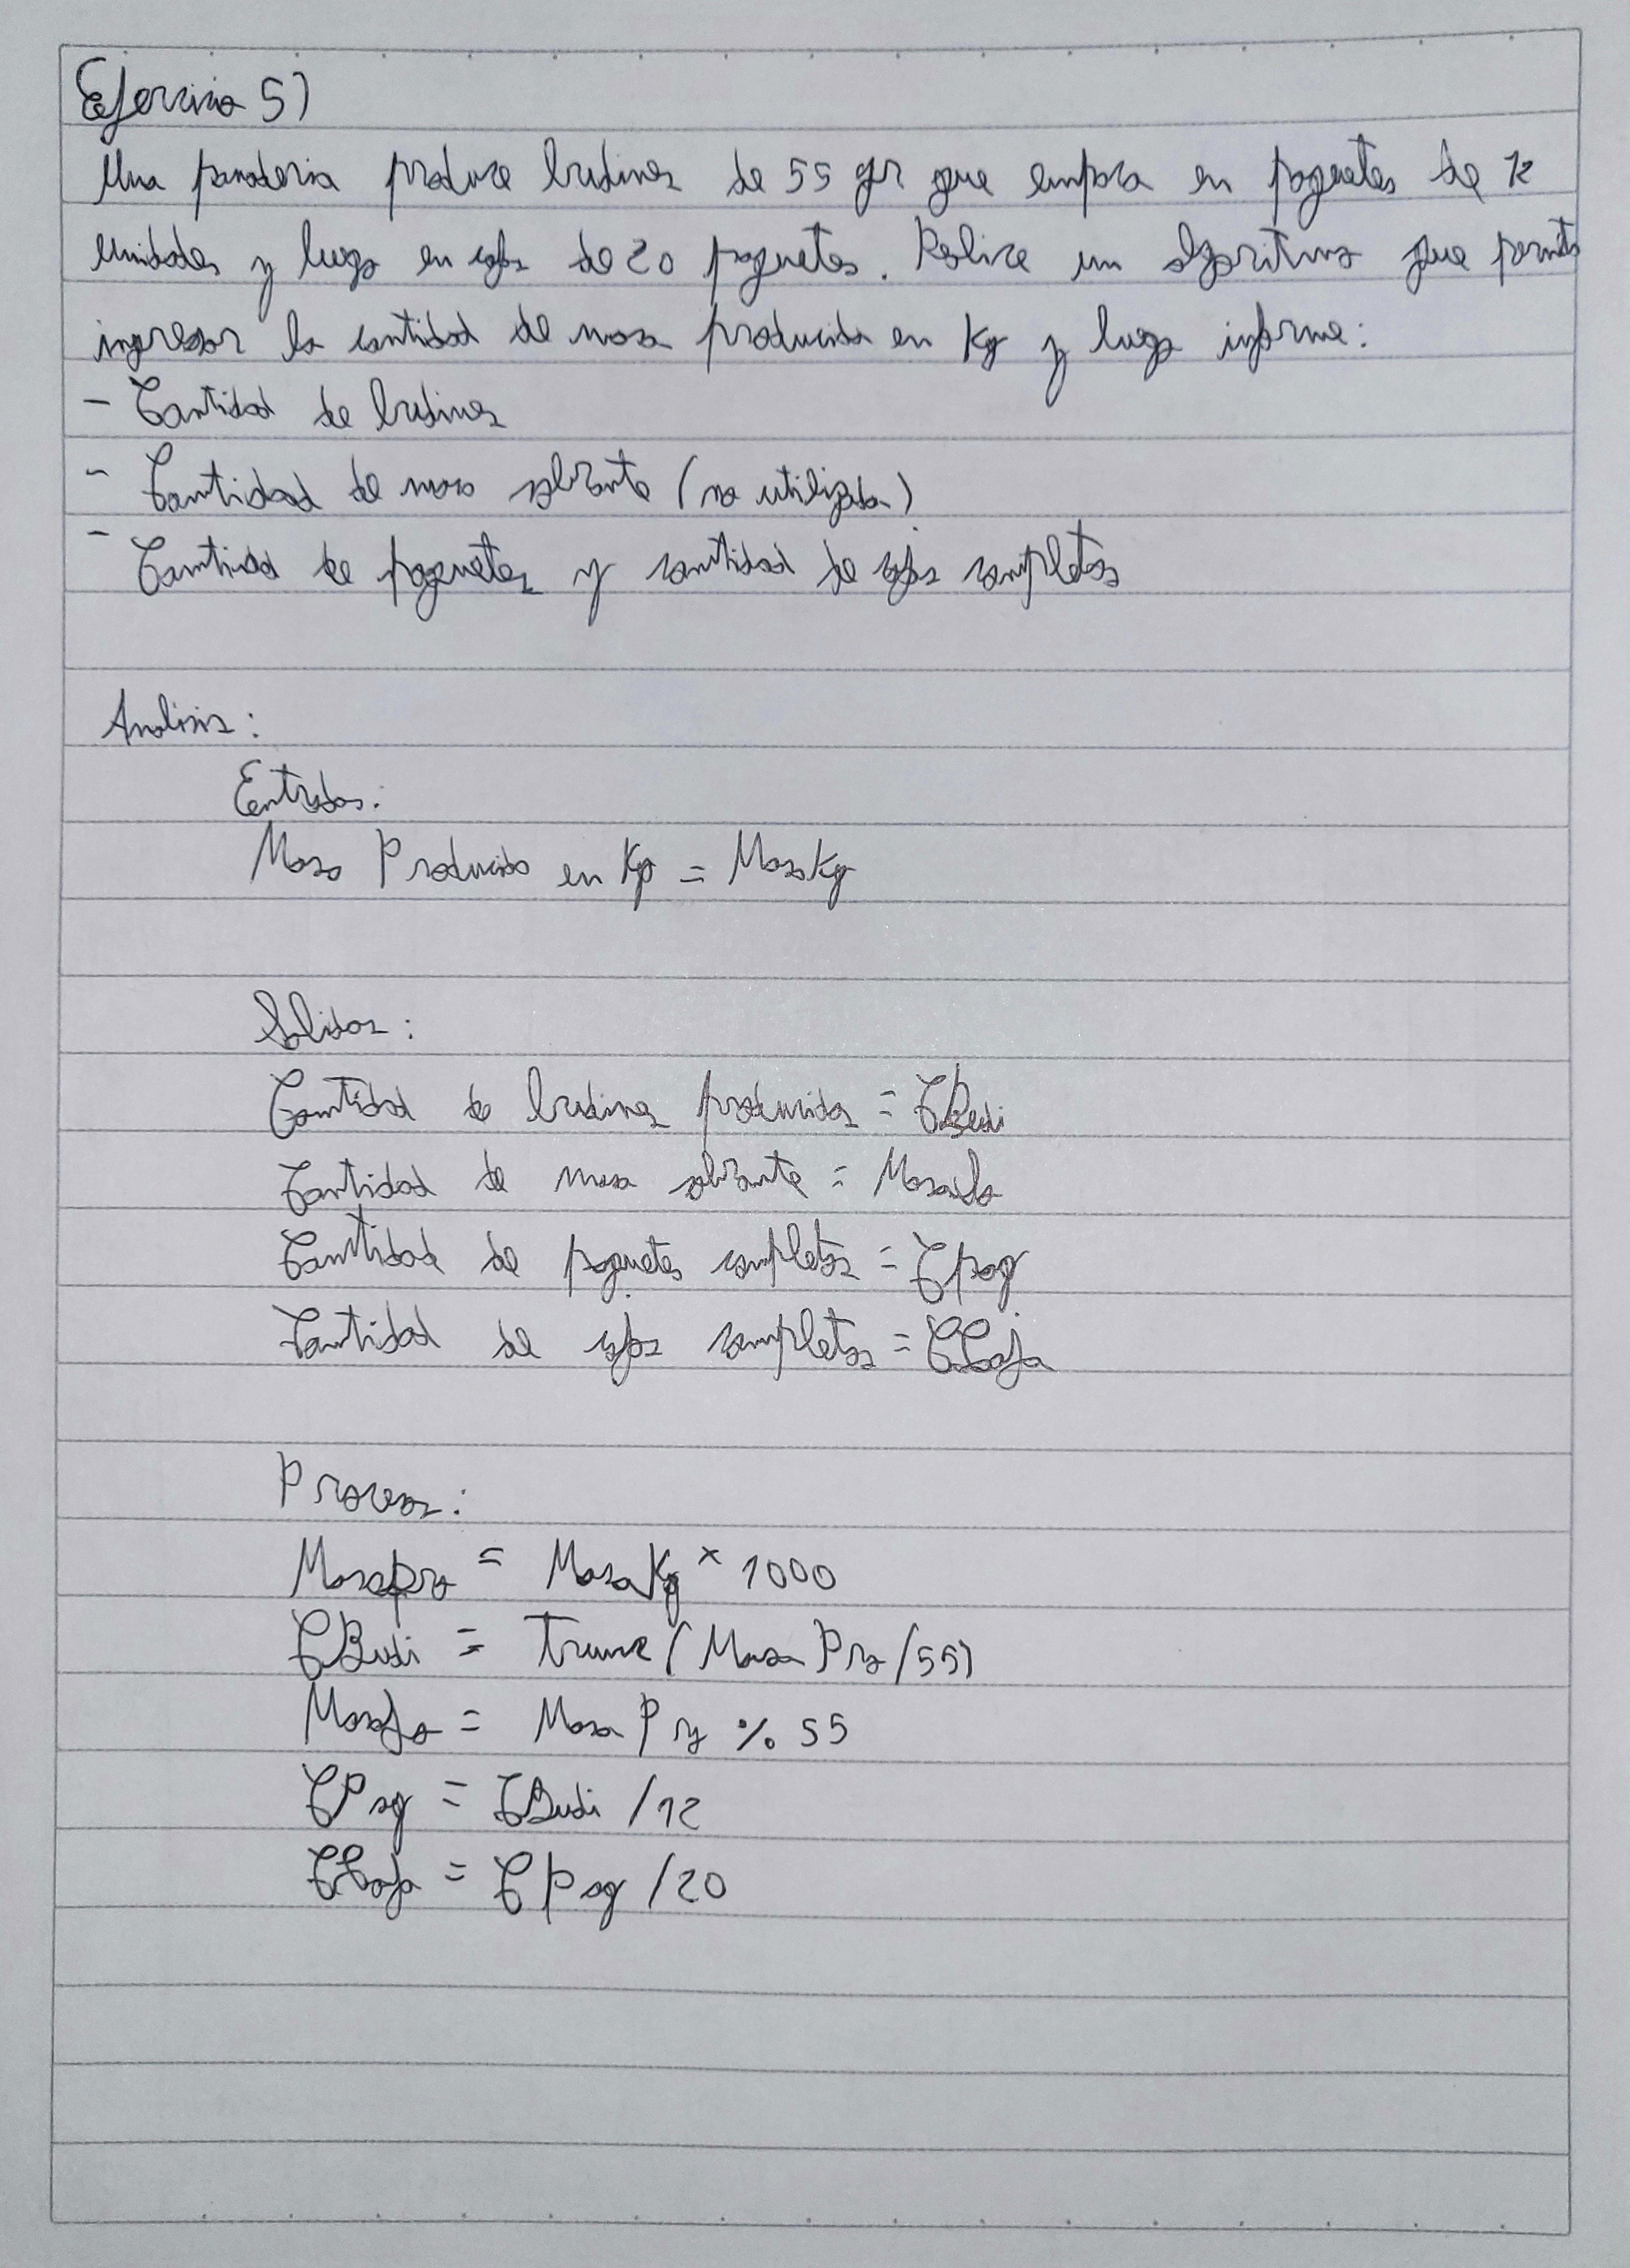 Ejercicio 5)
Una panaderia produce budines de 55 gr que empaca en paquetes de 12
unidades y luego en cajas de 20 paquetes. Realice un algoritmo que permita
ingresar la cantidad de masa producida en Kg y luego informe:
- Cantidad de budines
- Cantidad de masa sobrante (no utilizada)
- Cantidad de paquetes y cantidad de cajas completas
Analisis:
Entradas:
Masa Producida en Kg = MasaKg
Salidas:
Cantidad de budines producidos = CBudi
Cantidad de masa sobrante = MasaSo
Cantidad de paquetes completos = Cpaq
Cantidad de cajas completas = CCaja
Proceso:
Masapro = MasaKg × 1000
CBudi = Trunc (MasaPro/55)
MasaSo = MasaPro % 55
CPaq = CBudi /12
CCaja = CPaq /20